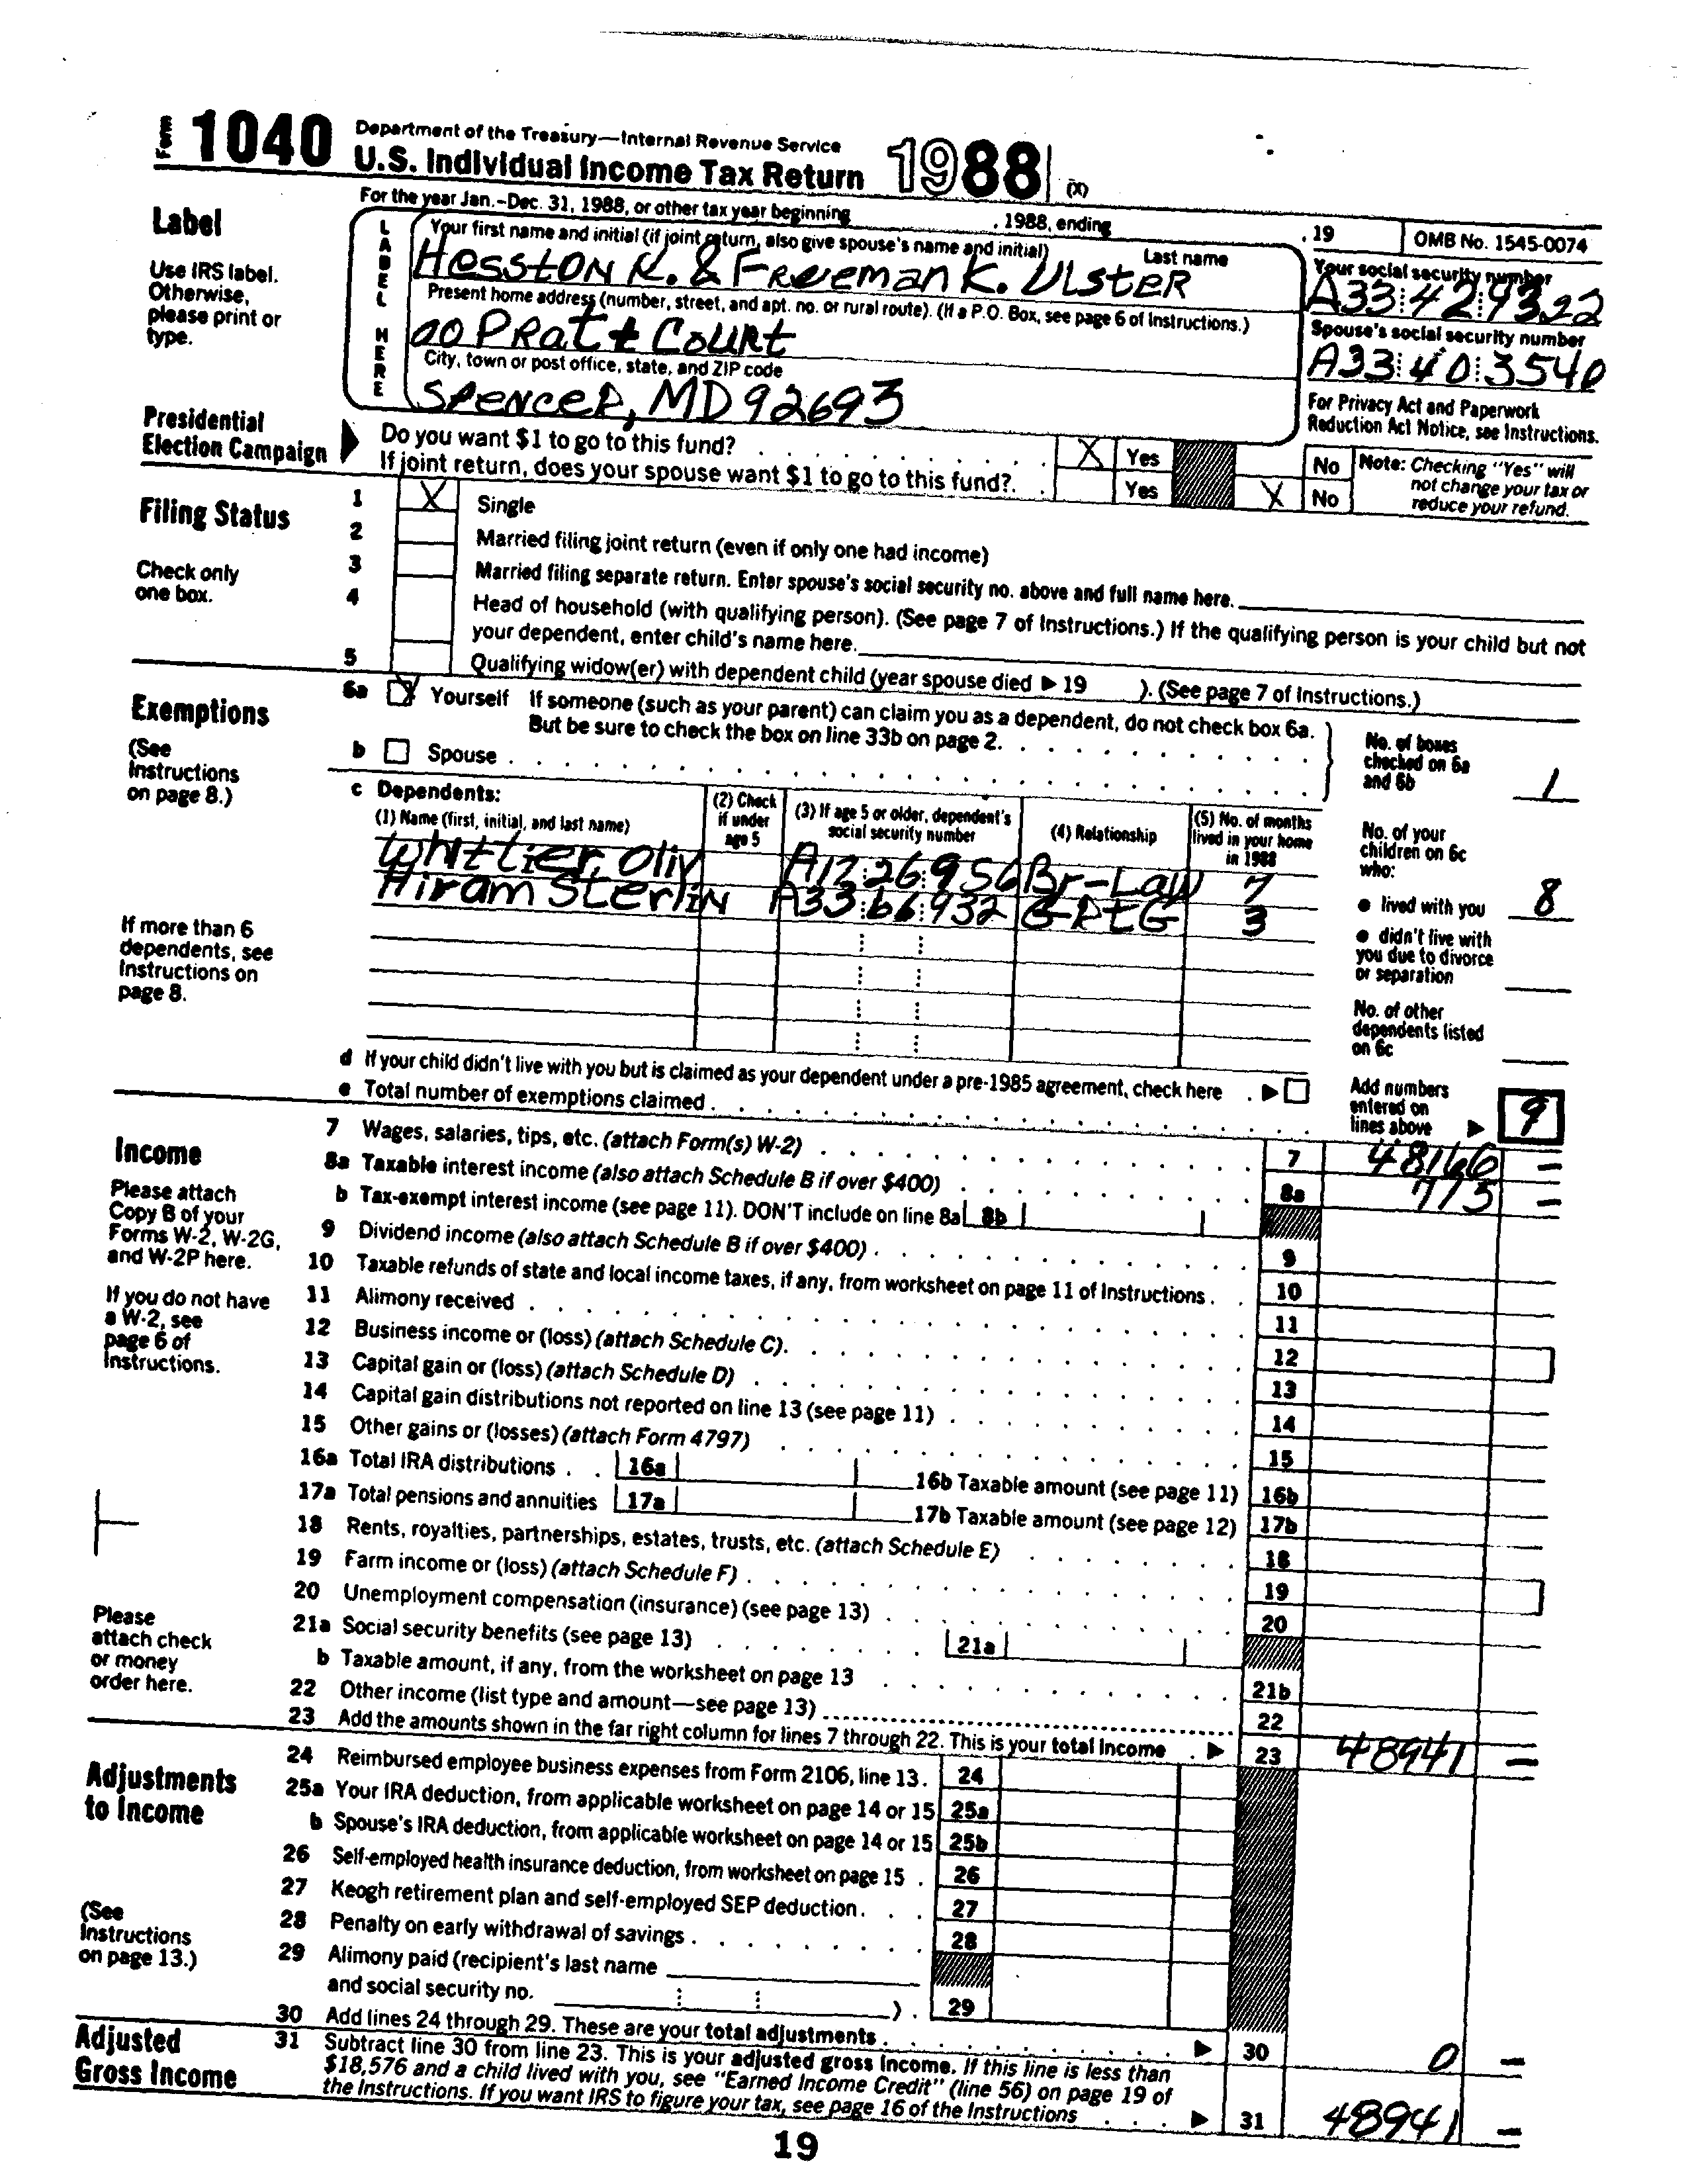 Form 1040 Department of the Treasury—Internal Revenue Service
U.S. Individual Income Tax Return 1988 (X)
For the year Jan.–Dec. 31, 1988, or other tax year beginning , 1988, ending , 19 OMB No. 1545-0074
Label
Use IRS label.
Otherwise,
please print or
type.
LABEL HERE
Your first name and initial (if joint return, also give spouse's name and initial) Last name
Hesston R. & Freeman K. Ulster
Your social security number
A33 42 9322
Present home address (number, street, and apt. no. or rural route). (If a P.O. Box, see page 6 of Instructions.)
00 Pratt Court
Spouse's social security number
A33 40 3540
City, town or post office, state, and ZIP code
Spencer, MD 92693
For Privacy Act and Paperwork
Reduction Act Notice, see Instructions.
Presidential
Election Campaign
Do you want $1 to go to this fund? X Yes No
If joint return, does your spouse want $1 to go to this fund? Yes X No
Note: Checking "Yes" will
not change your tax or
reduce your refund.
Filing Status
Check only
one box.
1 X Single
2 Married filing joint return (even if only one had income)
3 Married filing separate return. Enter spouse's social security no. above and full name here.
4 Head of household (with qualifying person). (See page 7 of Instructions.) If the qualifying person is your child but not
your dependent, enter child's name here.
5 Qualifying widow(er) with dependent child (year spouse died ▶ 19 ). (See page 7 of Instructions.)
Exemptions
(See
Instructions
on page 8.)
6a X Yourself If someone (such as your parent) can claim you as a dependent, do not check box 6a.
But be sure to check the box on line 33b on page 2.
b Spouse
No. of boxes
checked on 6a
and 6b 1
c Dependents:
(1) Name (first, initial, and last name)
(2) Check
if under
age 5
(3) If age 5 or older, dependent's
social security number
(4) Relationship
(5) No. of months
lived in your home
in 1988
Whittier, Oliv A17 26 956 Br-Law 7
Hiram Sterlin A33 66 932 G-RtG 3
If more than 6
dependents, see
Instructions on
page 8.
No. of your
children on 6c
who:
● lived with you 8
● didn't live with
you due to divorce
or separation
No. of other
dependents listed
on 6c
d If your child didn't live with you but is claimed as your dependent under a pre-1985 agreement, check here ▶
e Total number of exemptions claimed
Add numbers
entered on
lines above ▶ 9
Income
Please attach
Copy B of your
Forms W-2, W-2G,
and W-2P here.
If you do not have
a W-2, see
page 6 of
Instructions.
Please
attach check
or money
order here.
7 Wages, salaries, tips, etc. (attach Form(s) W-2) 7 48166 —
8a Taxable interest income (also attach Schedule B if over $400) 8a 775 —
b Tax-exempt interest income (see page 11). DON'T include on line 8a 8b
9 Dividend income (also attach Schedule B if over $400) 9
10 Taxable refunds of state and local income taxes, if any, from worksheet on page 11 of Instructions 10
11 Alimony received 11
12 Business income or (loss) (attach Schedule C) 12
13 Capital gain or (loss) (attach Schedule D) 13
14 Capital gain distributions not reported on line 13 (see page 11) 14
15 Other gains or (losses) (attach Form 4797) 15
16a Total IRA distributions 16a 16b Taxable amount (see page 11) 16b
17a Total pensions and annuities 17a 17b Taxable amount (see page 12) 17b
18 Rents, royalties, partnerships, estates, trusts, etc. (attach Schedule E) 18
19 Farm income or (loss) (attach Schedule F) 19
20 Unemployment compensation (insurance) (see page 13) 20
21a Social security benefits (see page 13) 21a
b Taxable amount, if any, from the worksheet on page 13 21b
22 Other income (list type and amount—see page 13) 22
23 Add the amounts shown in the far right column for lines 7 through 22. This is your total income ▶ 23 48941 —
Adjustments
to Income
(See
Instructions
on page 13.)
24 Reimbursed employee business expenses from Form 2106, line 13. 24
25a Your IRA deduction, from applicable worksheet on page 14 or 15 25a
b Spouse's IRA deduction, from applicable worksheet on page 14 or 15 25b
26 Self-employed health insurance deduction, from worksheet on page 15 26
27 Keogh retirement plan and self-employed SEP deduction 27
28 Penalty on early withdrawal of savings 28
29 Alimony paid (recipient's last name
and social security no. ) 29
30 Add lines 24 through 29. These are your total adjustments ▶ 30 0 —
Adjusted
Gross Income
31 Subtract line 30 from line 23. This is your adjusted gross income. If this line is less than
$18,576 and a child lived with you, see "Earned Income Credit" (line 56) on page 19 of
the Instructions. If you want IRS to figure your tax, see page 16 of the Instructions ▶ 31 48941 —
19